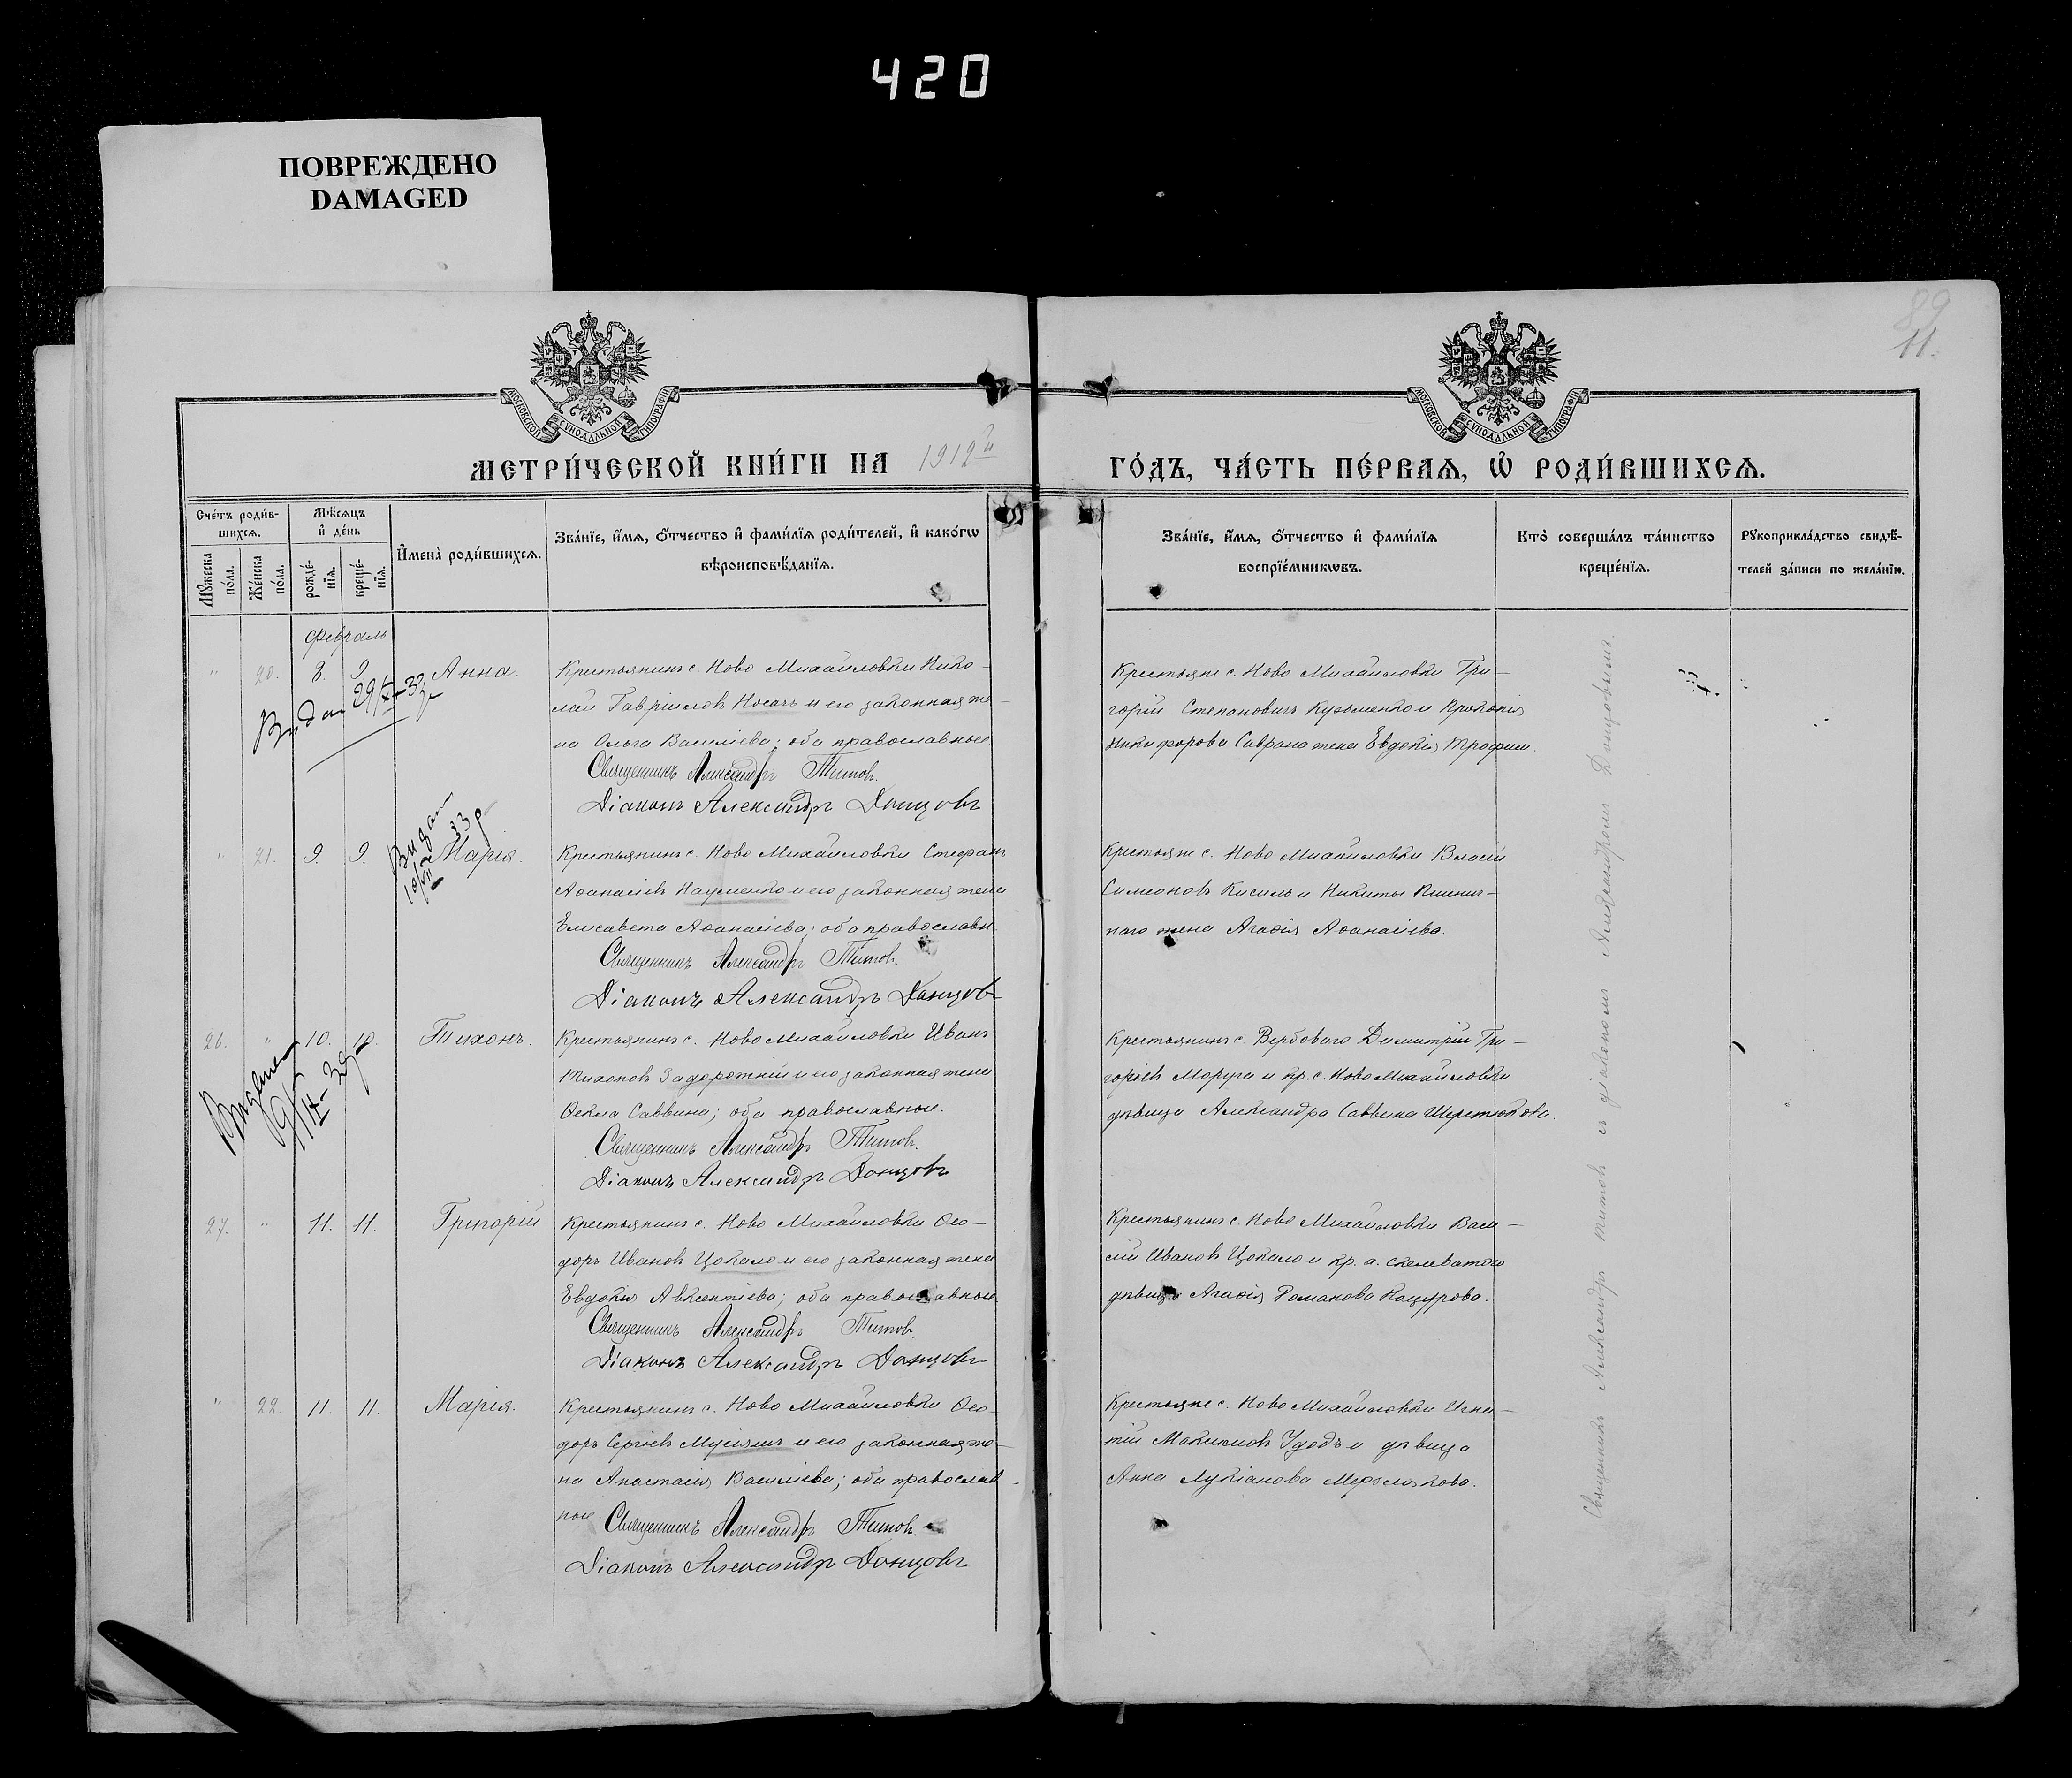 420
ПОВРЕЖДЕНО
DAMAGED
89
11.
МОСКОВСКОЙ СѴНОДАЛЬНОЙ ТИПОГРАФІИ
МОСКОВСКОЙ СѴНОДАЛЬНОЙ ТИПОГРАФІИ
МЕТРИ́ЧЕСКОЙ КНИ́ГИ НА 1912й
ГО́ДЪ, ЧА́СТЬ ПЕ́РВАѦ, Ѡ҆ РОДИ́ВШИХСѦ.
Сче́тъ роди́в-
шихсѧ.
Мѣ́сѧцъ
и҆ де́нь
Мꙋ́жеска
по́ла.
Же́нска
по́ла.
рожде́-
нїѧ.
креще́-
нїѧ.
И҆мена̀ роди́вшихсѧ.
Зва́нїе, и҆́мѧ, ѻ҆́тчество и҆ фами́лїѧ роди́телей, и҆ како́гѡ
вѣроисповѣ́данїѧ.
Зва́нїе, и҆́мѧ, ѻ҆́тчество и҆ фами́лїѧ
воспрїе́мникѡвъ.
Кто̀ соверша́лъ та́инство
креще́нїѧ.
Рꙋкоприкла́дство свидѣ́-
телей за́писи по жела́нїю.
Февраль
" 20. 8. 9. Анна.
Крестьянинъ с. Ново Михайловки Нико-
лай Гавріиловъ Носачъ и его законная же-
на Ольга Василіева; оба православные
Священникъ Александръ Титовъ.
Діаконъ Александръ Донцовъ
Крестьяне с. Ново Михайловки Гри-
горій Степановичъ Кузьменко и Прокопія
Никифорова Саврана жена Евдокія Трофим.
Видан 29/X-32г
" 21. 9. 9. Марія.
Видан
33 р
Крестьянинъ с. Ново Михайловки Стефанъ
Аѳанасіевъ Науменко и его законная жена
Елисавета Аѳанасіева; оба православн
Священникъ Александръ Титовъ.
Діаконъ Александръ Донцовъ
Крестьяне с. Ново Михайловки Власій
Симеоновъ Кисиль и Никиты Пшенич-
наго жена Агаѳія Аѳанасіева.
26. " 10. 10. Тихонъ.
Крестьянинъ с. Ново Михайловки Иванъ
Тихоновъ Задорожній и его законная жена
Ѳекла Саввина; оба православные.
Священникъ Александръ Титовъ.
Діаконъ Александръ Донцовъ
Крестьянинъ с. Вербоваго Димитрій Гри-
горіевъ Моруга и кр. с. Ново Михайловки
дѣвица Александра Саввина Шерстюкова.
27. " 11. 11. Григорій
Крестьянинъ с. Ново Михайловки Ѳео-
доръ Ивановъ Цокало и его законная жена
Евдокія Авксентіева; оба православные
Священникъ Александръ Титовъ.
Діаконъ Александръ Донцовъ
Крестьянинъ с. Ново Михайловки Васи-
лій Ивановъ Цокало и кр. д. Скелеватого
дѣвица Агаѳія Романова Кацурова.
" 22. 11. 11. Марія.
Крестьянинъ с. Ново Михайловки Ѳео-
доръ Сергіевъ Мусіячъ и его законная же-
на Анастасія Василіева; оба православ-
ные. Священникъ Александръ Титовъ.
Діаконъ Александръ Донцовъ
Крестьяне с. Ново Михайловки Игна-
тій Максимовъ Удодъ и дѣвица
Анна Лукіанова Мерзлякова.
Священникъ Александръ Титовъ съ діакономъ Александромъ Донцовымъ.